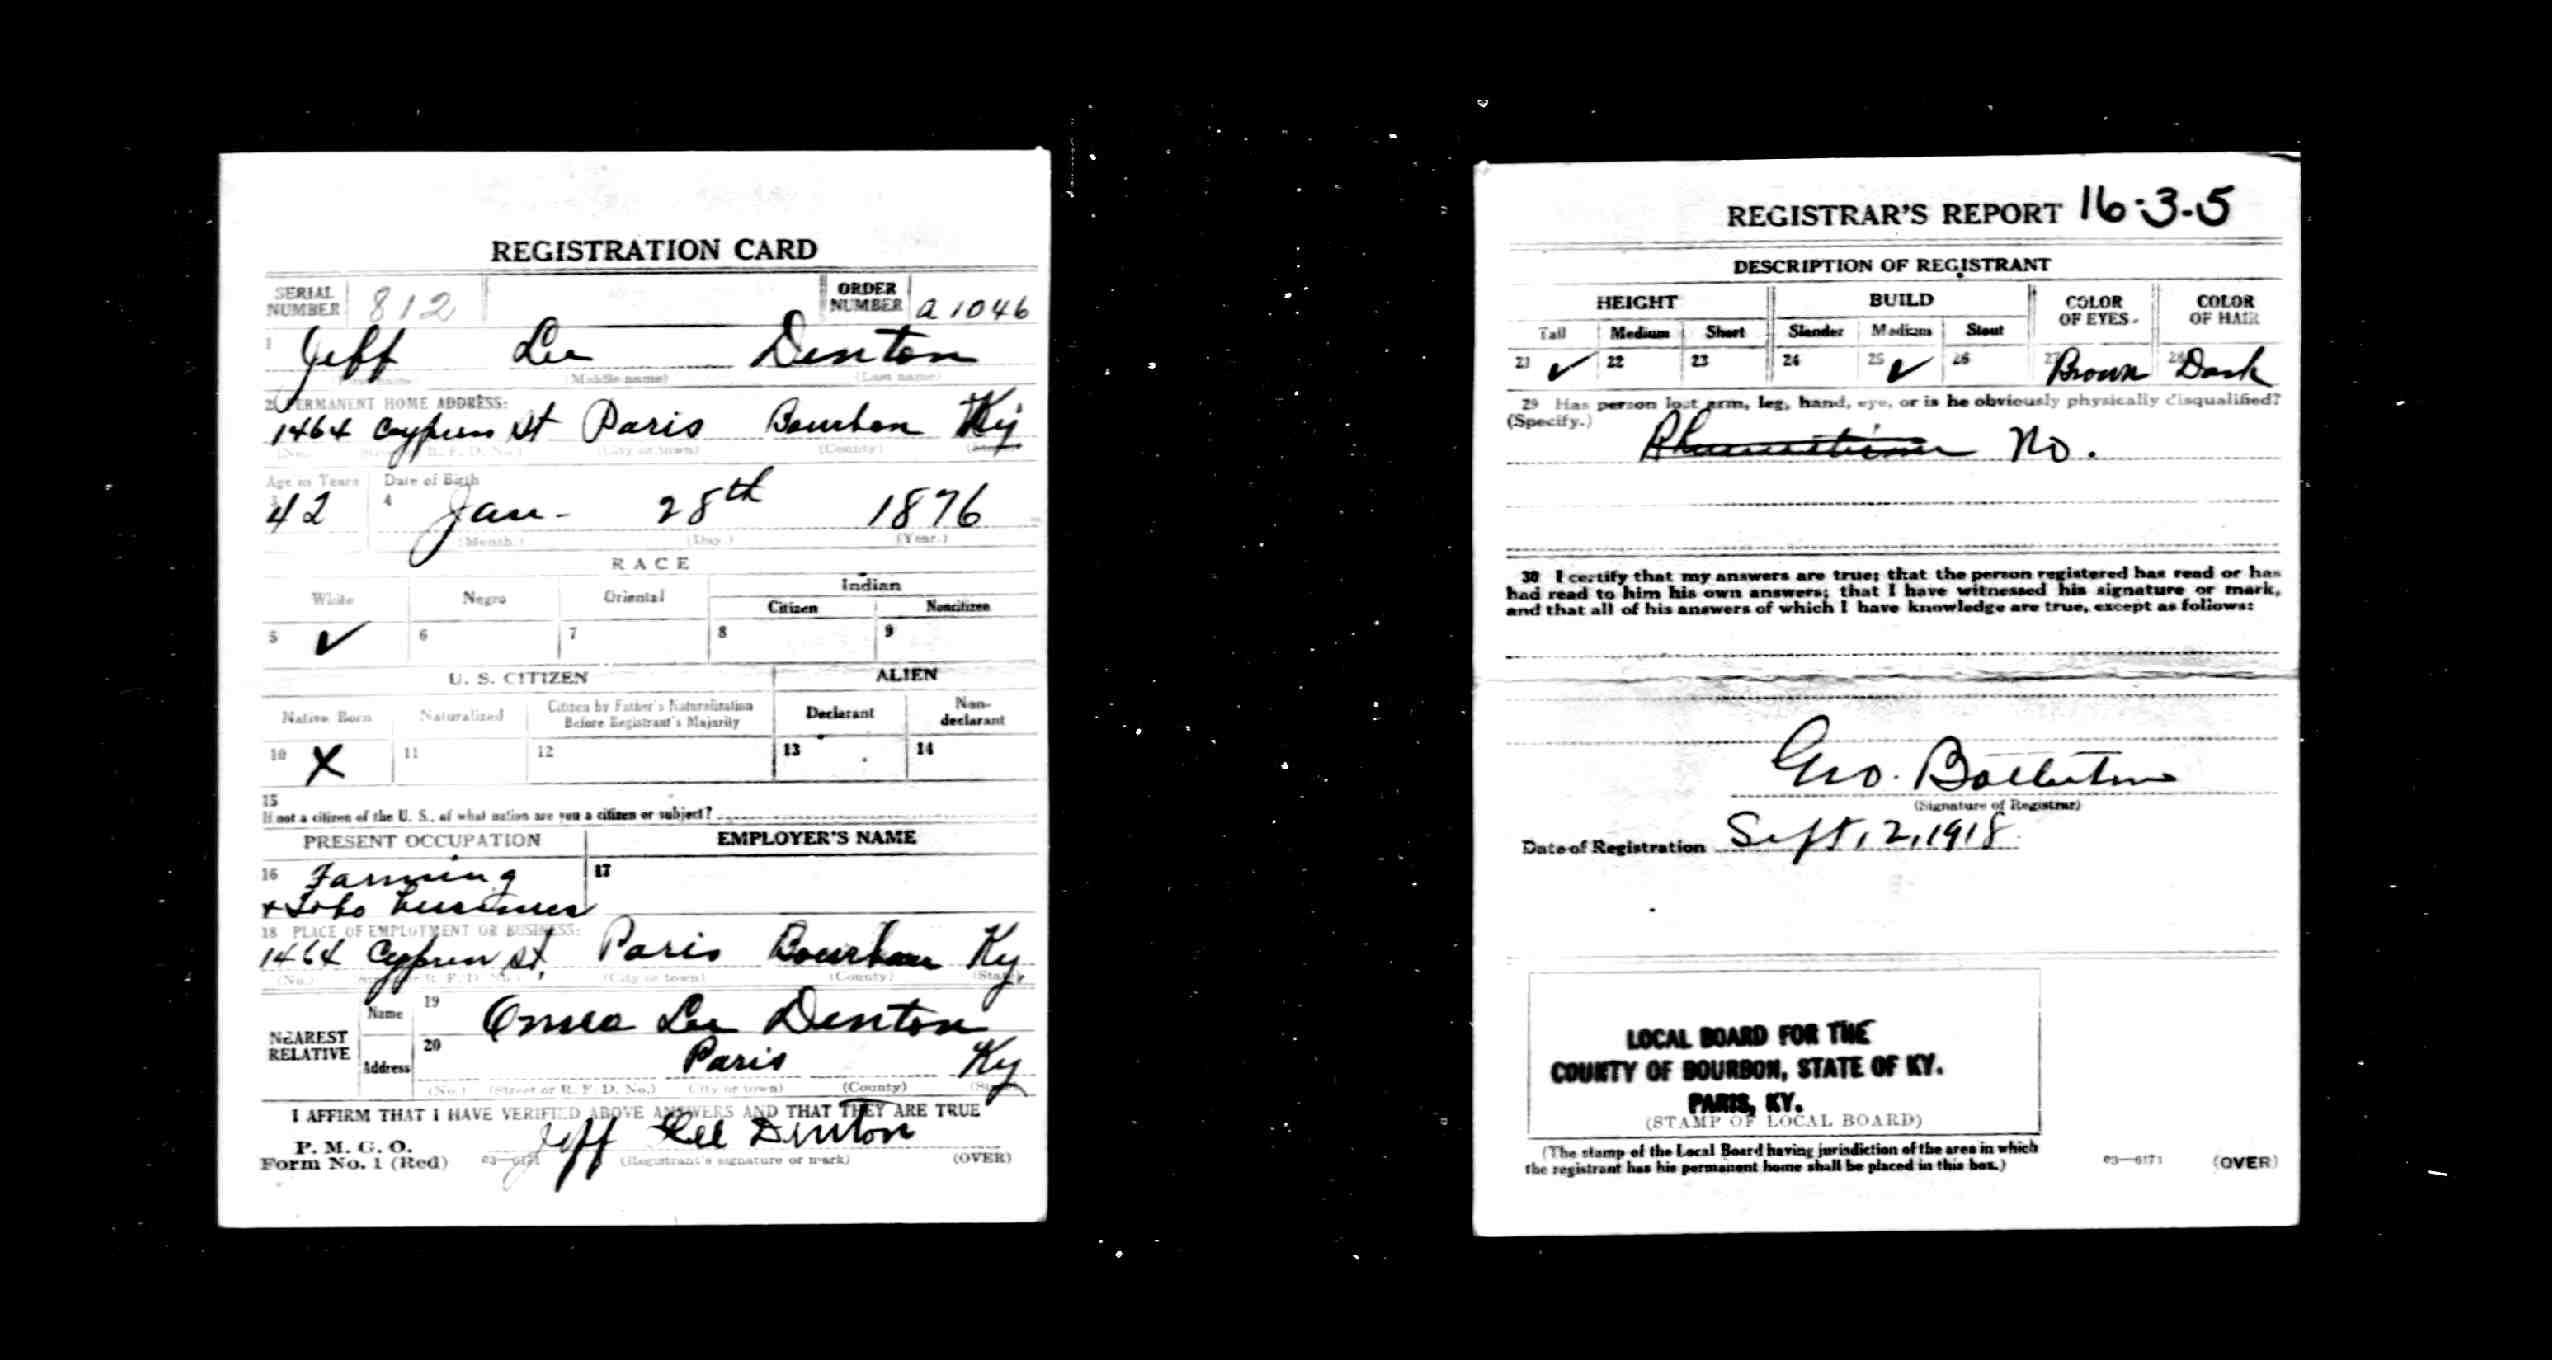 REGISTRATION CARD
SERIAL NUMBER 812 ORDER NUMBER a 1046
1 Jeff Lee Denton
(First name) (Middle name) (Last name)
2 PERMANENT HOME ADDRESS:
1464 Cypress St Paris Bourbon Ky
(No.) (Street or R. F. D. No.) (City or town) (County) (State)
Age in Years Date of Birth
3 42 4 Jan - 28th 1876
(Month.) (Day.) (Year.)
RACE
White Negro Oriental Indian
Citizen Noncitizen
5 ✓ 6 7 8 9
U. S. CITIZEN ALIEN
Native Born Naturalized Citizen by Father's Naturalization Before Registrant's Majority Declarant Non-declarant
10 X 11 12 13 14
15
If not a citizen of the U. S., of what nation are you a citizen or subject?
PRESENT OCCUPATION EMPLOYER'S NAME
16 Farming 17
+ Tobo business
18 PLACE OF EMPLOYMENT OR BUSINESS:
1464 Cypress St, Paris Bourbon Ky,
(No.) (Street or R. F. D. No.) (City or town) (County) (State)
NEAREST RELATIVE Name 19 Lee Denton
Address 20 Paris Ky
(No.) (Street or R. F. D. No.) (City or town) (County) (State)
I AFFIRM THAT I HAVE VERIFIED ABOVE ANSWERS AND THAT THEY ARE TRUE
P. M. G. O.
Form No. 1 (Red) 03—6171 Jeff Lee Denton
(Registrant's signature or mark) (OVER)
REGISTRAR'S REPORT 16-3-5
DESCRIPTION OF REGISTRANT
HEIGHT BUILD COLOR OF EYES COLOR OF HAIR
Tall Medium Short Slender Medium Stout
21 ✓ 22 23 24 25 ✓ 26 27 Brown 28 Dark
29 Has person lost arm, leg, hand, eye, or is he obviously physically disqualified?
(Specify.)
No.
30 I certify that my answers are true; that the person registered has read or has
had read to him his own answers; that I have witnessed his signature or mark,
and that all of his answers of which I have knowledge are true, except as follows:
Geo.
(Signature of Registrar)
Date of Registration Sept, 12, 1918
LOCAL BOARD FOR THE
COUNTY OF BOURBON, STATE OF KY.
PARIS, KY.
(STAMP OF LOCAL BOARD)
(The stamp of the Local Board having jurisdiction of the area in which
the registrant has his permanent home shall be placed in this box.)
03—6171 (OVER)